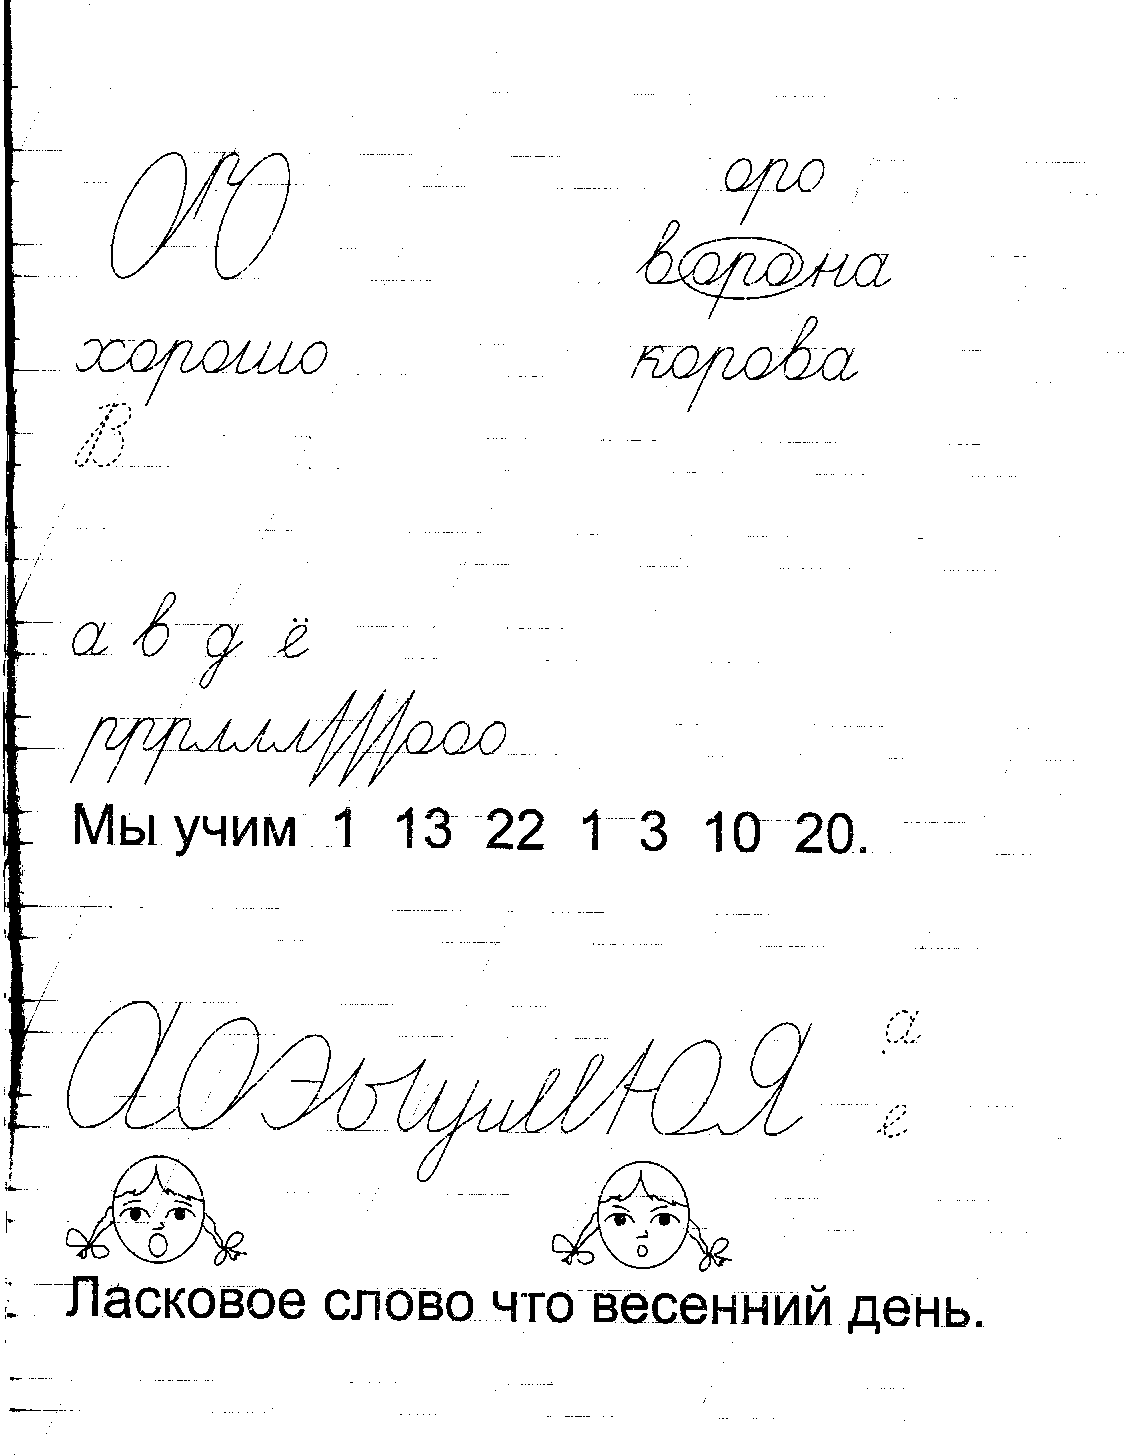 ОГО оро
ворона
хорошо корова
В
а в д ё
рррллл ооо
Мы учим 1 13 22 1 3 10 20.
а
АОЭыуиеЮЯ
е
Ласковое слово что весенний день.